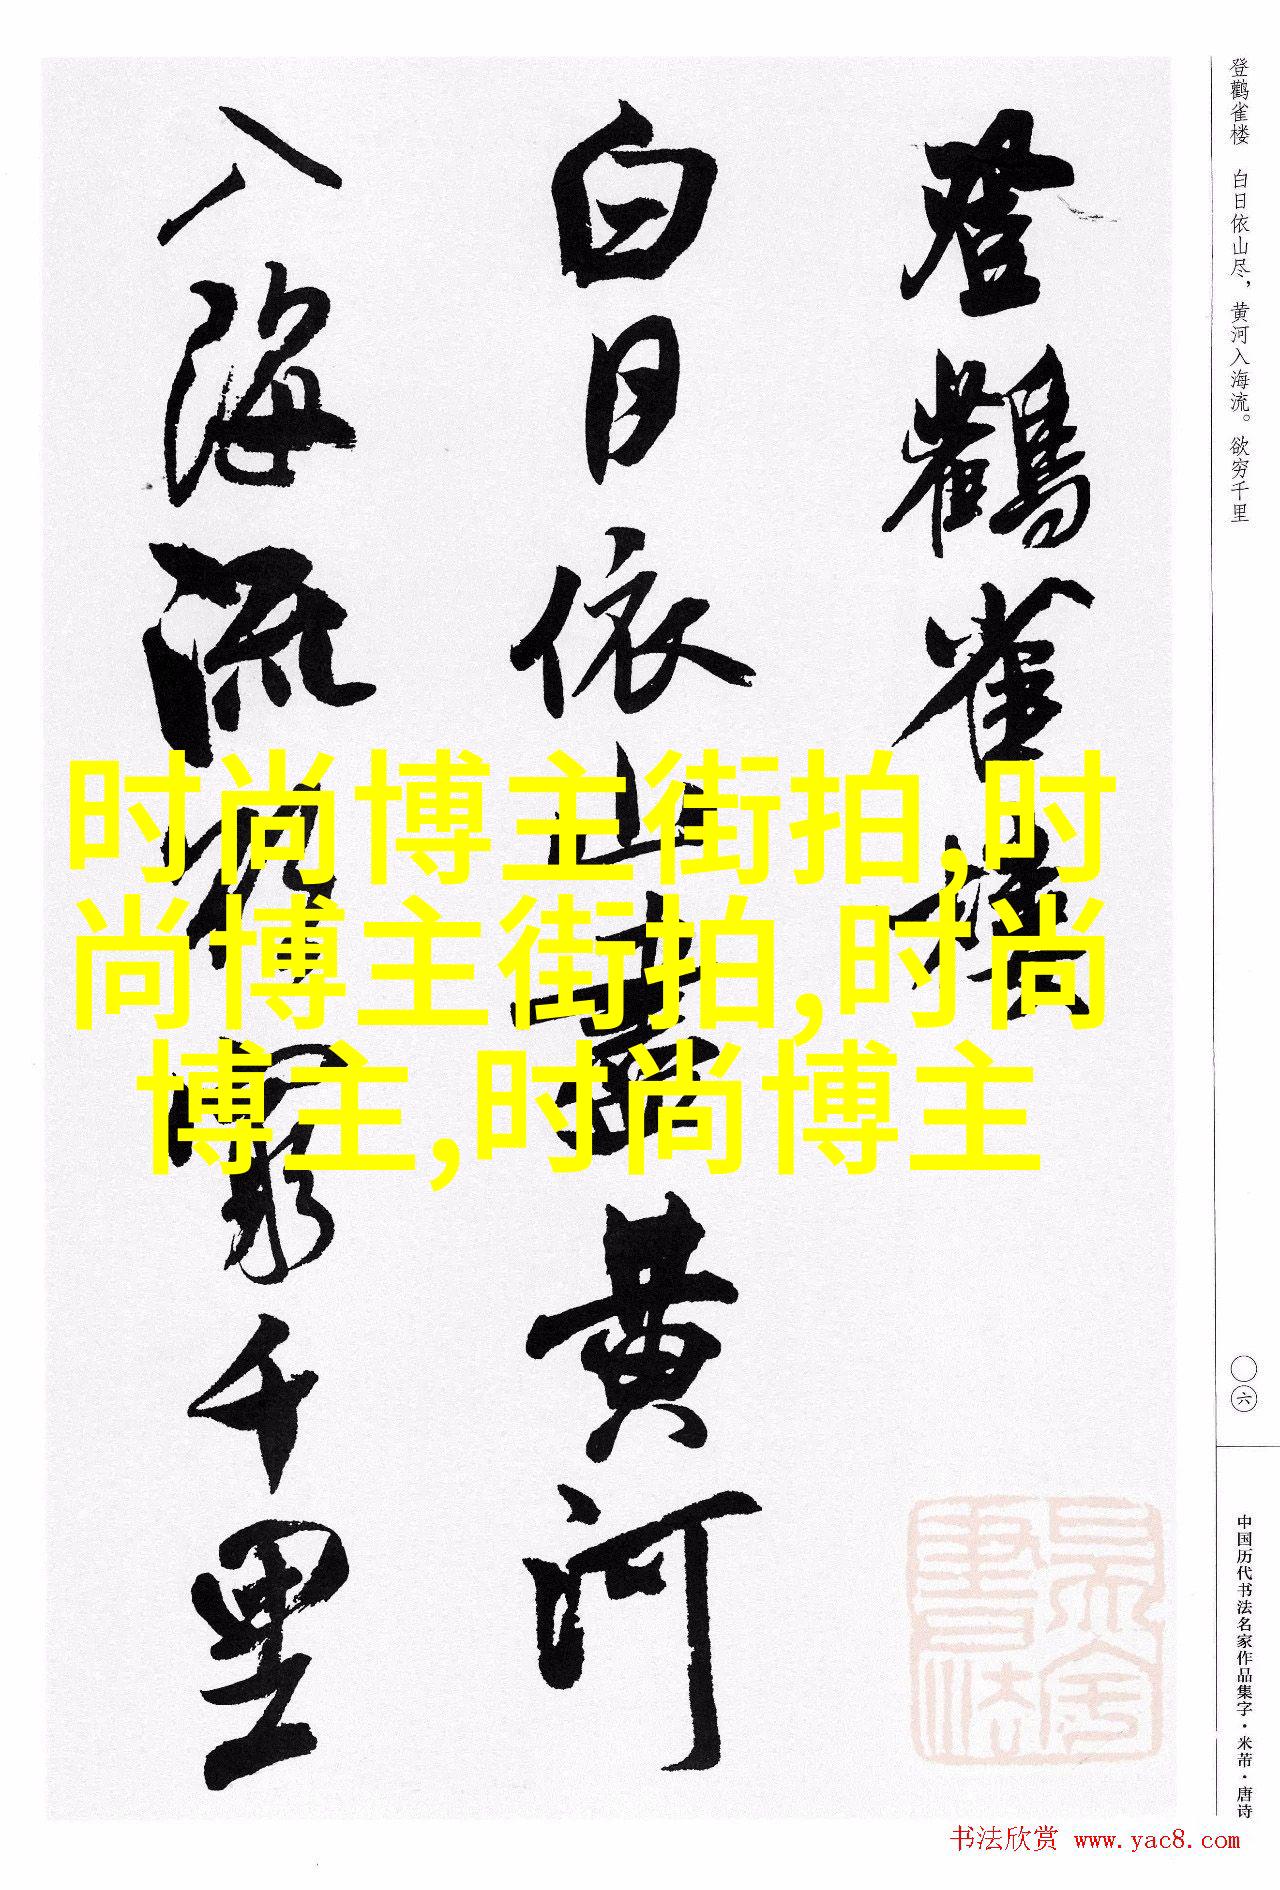 登鹳雀楼 白日依山尽，黄河入海流。欲穷千里
登鸛雀樓
白日依山盡黄河
入海流欲窮千里
时尚博主街拍,时
尚博主街拍,时尚
博主,时尚博主
〇六
中国历代书法名家作品集字·米芾·唐诗
书法欣赏 www.yac8.com